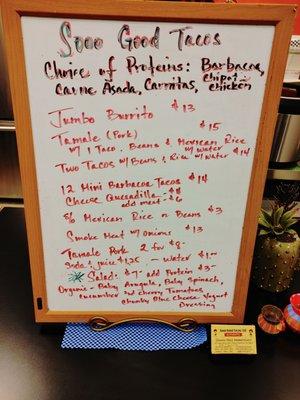 Sooo Good Tacos
Choice of Proteins: Barbacoa,
Carne Asada, Carnitas, Chipotle
Chicken
Jumbo Burrito $13
Tamale (Pork) $15
w/ 1 Taco, Beans & Mexican Rice
w/ water
Two Tacos w/ Beans & Rice w/ Water $14
12 Mini Barbacoa Tacos $14
Cheese Quesadilla - $8
add meat - $6
S/o Mexican Rice or Beans $3
Smoke Meat w/ Onions $13
Tamale Pork 2 for $8-
Soda & juice $1.25 - Water $1.00
Salad: $7- add Protein $3-
Organic - Baby Arugula, Baby Spinach,
cucumber and cherry Tomatoes
Chunky Blue Cheese Yogurt
Dressing